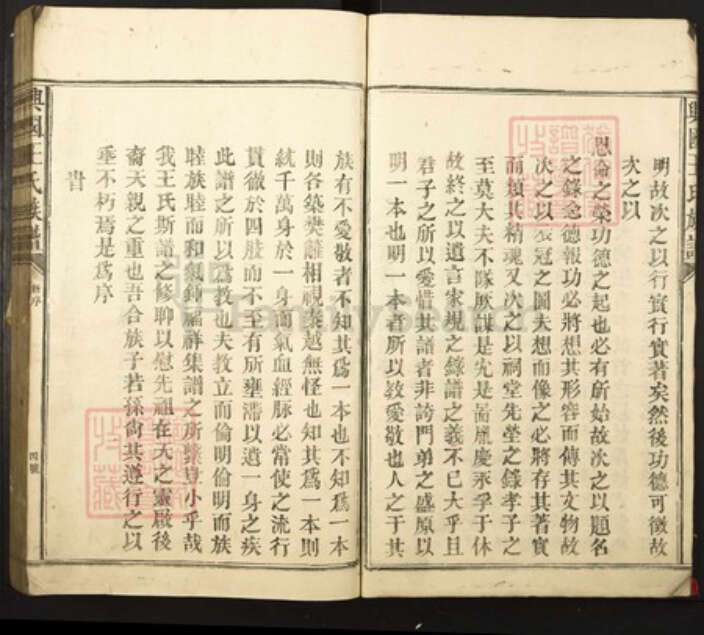 明故次之以行實行實著矣然後功德可徵故
次之以
恩倫之榮功德之起也必有所始故次之以題名
之錄念德報功必將想其形容而傳其文物故
次之以衣冠之圖夫想而像之必將存其著實
而類其精魂又次之以祠堂先塋之錄孝子之
至莫大夫不隊厥謀是先是啚胤慶永孚于休
故終之以遺言家規之錄譜之義不已大乎且
君子之所以愛惜其譜者非誇門弟之盛原以
明一本也明一本者所以敎愛敬也人之于其
族有不愛敬者不知其爲一本也不知爲一本
則各築樊籬相視秦越無怪也知其爲一本則
統千萬身於一身而氣血經脉必常使之流行
貫徹於四肢而不至有所壅滯以遺一身之疾
此譜之所以爲敎也夫敎立而倫明倫明而族
睦族睦而和氣鍾福祥集譜之所懷豈小乎哉
我王氏斯譜之修聊以慰先祖在天之靈啟後
裔天親之重也吾合族子若孫尙其遵行之以
垂不朽焉是爲序
旹
興國王氏族譜
新序
四號
興國王氏族譜